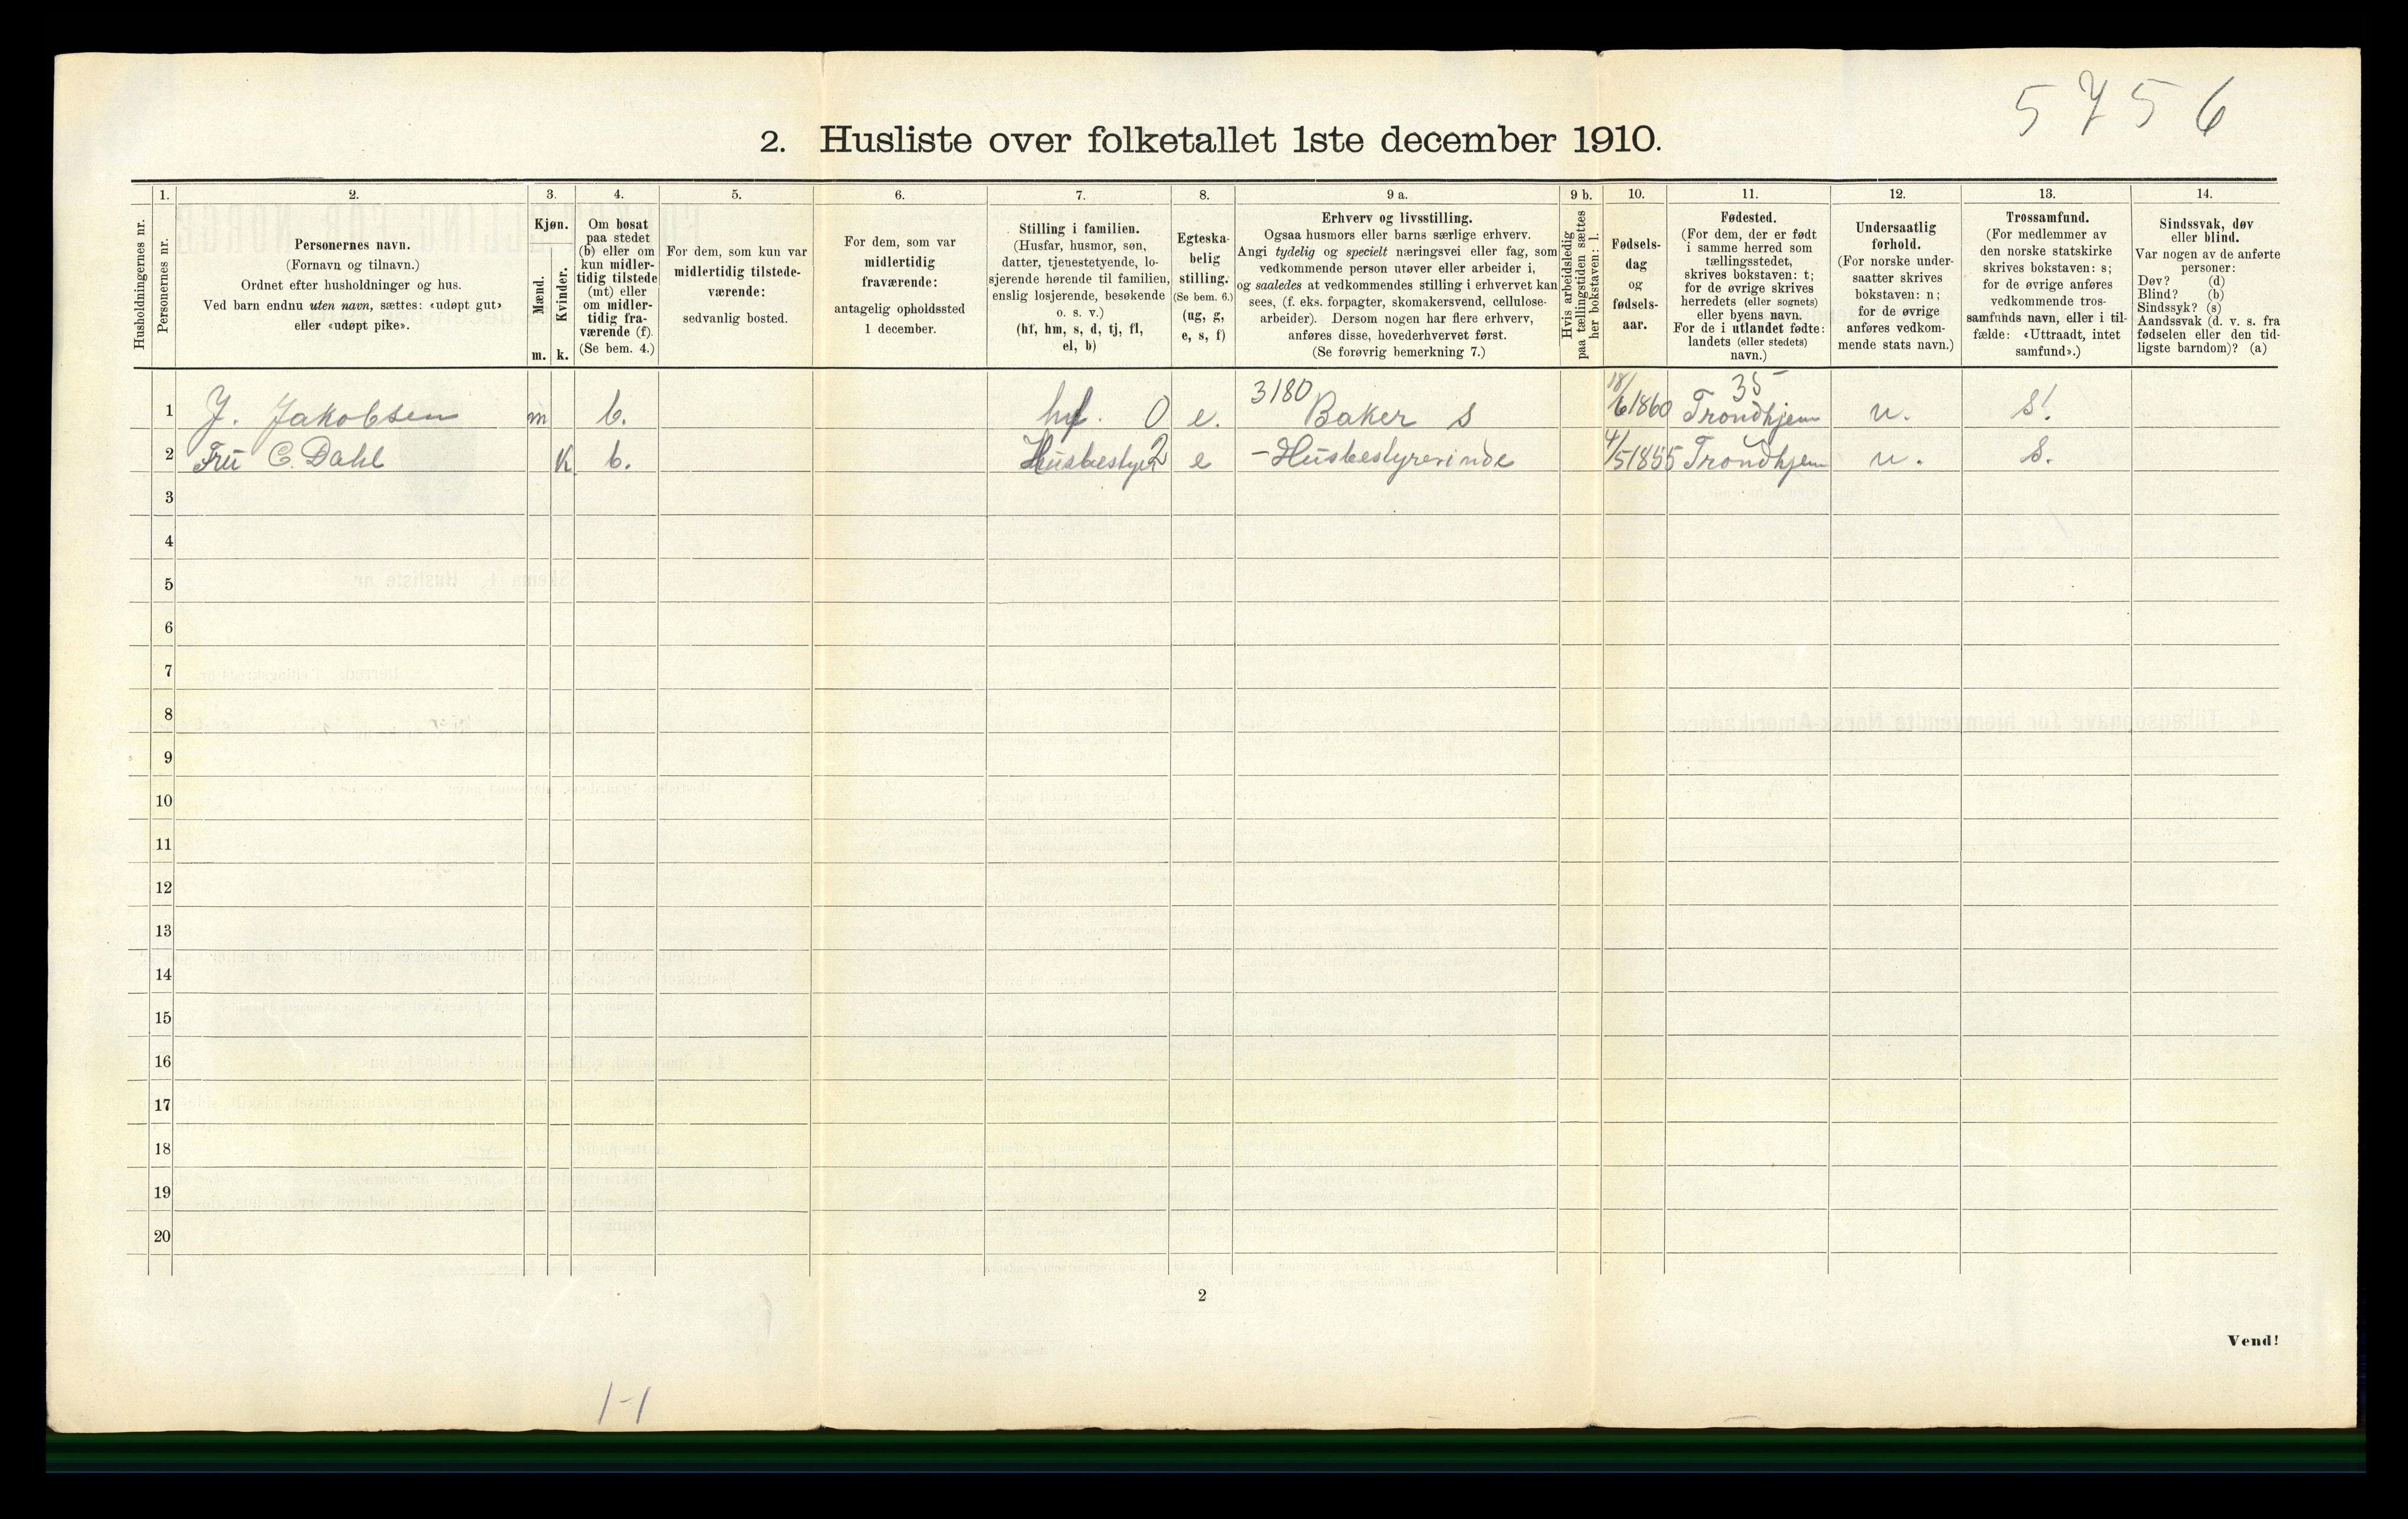 5756
2. Husliste over folketallet 1ste december 1910.
Husholdningernes nr.
1.
Personernes nr.
2.
Personernes navn.
(Fornavn og tilnavn.)
Ordnet efter husholdninger og hus.
Ved barn endnu uten navn, sættes: «udøpt gut»
eller «udøpt pike».
3.
Kjøn.
Mænd.
Kvinder.
m. k.
4.
Om bosat
paa stedet
(b) eller om
kun midler-
tidig tilstede
(mt) eller
om midler-
tidig fra-
værende (f).
(Se bem. 4.)
5.
For dem, som kun var
midlertidig tilstede-
værende:
sedvanlig bosted.
6.
For dem, som var
midlertidig
fraværende:
antagelig opholdssted
1 december.
7.
Stilling i familien.
(Husfar, husmor, søn,
datter, tjenestetyende, lo-
sjerende hørende til familien,
enslig losjerende, besøkende
o. s. v.)
(hf, hm, s, d, tj, fl,
el, b)
8.
Egteska-
belig
stilling.
(Se bem. 6.)
(ug, g,
e, s, f)
9 a.
Erhverv og livsstilling.
Ogsaa husmors eller barns særlige erhverv.
Angi tydelig og specielt næringsvei eller fag, som
vedkommende person utøver eller arbeider i,
og saaledes at vedkommendes stilling i erhvervet kan
sees, (f. eks. forpagter, skomakersvend, cellulose-
arbeider). Dersom nogen har flere erhverv,
anføres disse, hovederhvervet først.
(Se forøvrig bemerkning 7.)
9 b.
Hvis arbeidsledig
paa tællingstiden sættes
her bokstaven: l.
10.
Fødsels-
dag
og
fødsels-
aar.
11.
Fødested.
(For dem, der er født
i samme herred som
tællingsstedet,
skrives bokstaven: t;
for de øvrige skrives
herredets (eller sognets)
eller byens navn.
For de i utlandet fødte:
landets (eller stedets)
navn.)
12.
Undersaatlig
forhold.
(For norske under-
saatter skrives
bokstaven: n;
for de øvrige
anføres vedkom-
mende stats navn.)
13.
Trossamfund.
(For medlemmer av
den norske statskirke
skrives bokstaven: s;
for de øvrige anføres
vedkommende tros-
samfunds navn, eller i til-
fælde: «Uttraadt, intet
samfund».)
14.
Sindssvak, døv
eller blind.
Var nogen av de anførte
personer:
Døv? (d)
Blind? (b)
Sindssyk? (s)
Aandssvak (d. v. s. fra
fødselen eller den tid-
ligste barndom)? (a)
3180 35
1 J. Jakobsen m b. hf. 0 e. Baker s 18/6 1860 Trondhjem n. s.
2 Fru C. Dahl k b. 2 e - Husbestyrerinde 4/5 1855 Trondhjem n. s.
3
4
5
6
7
8
9
10
11
12
13
14
15
16
17
18
19
20
2
Vend!
1-1